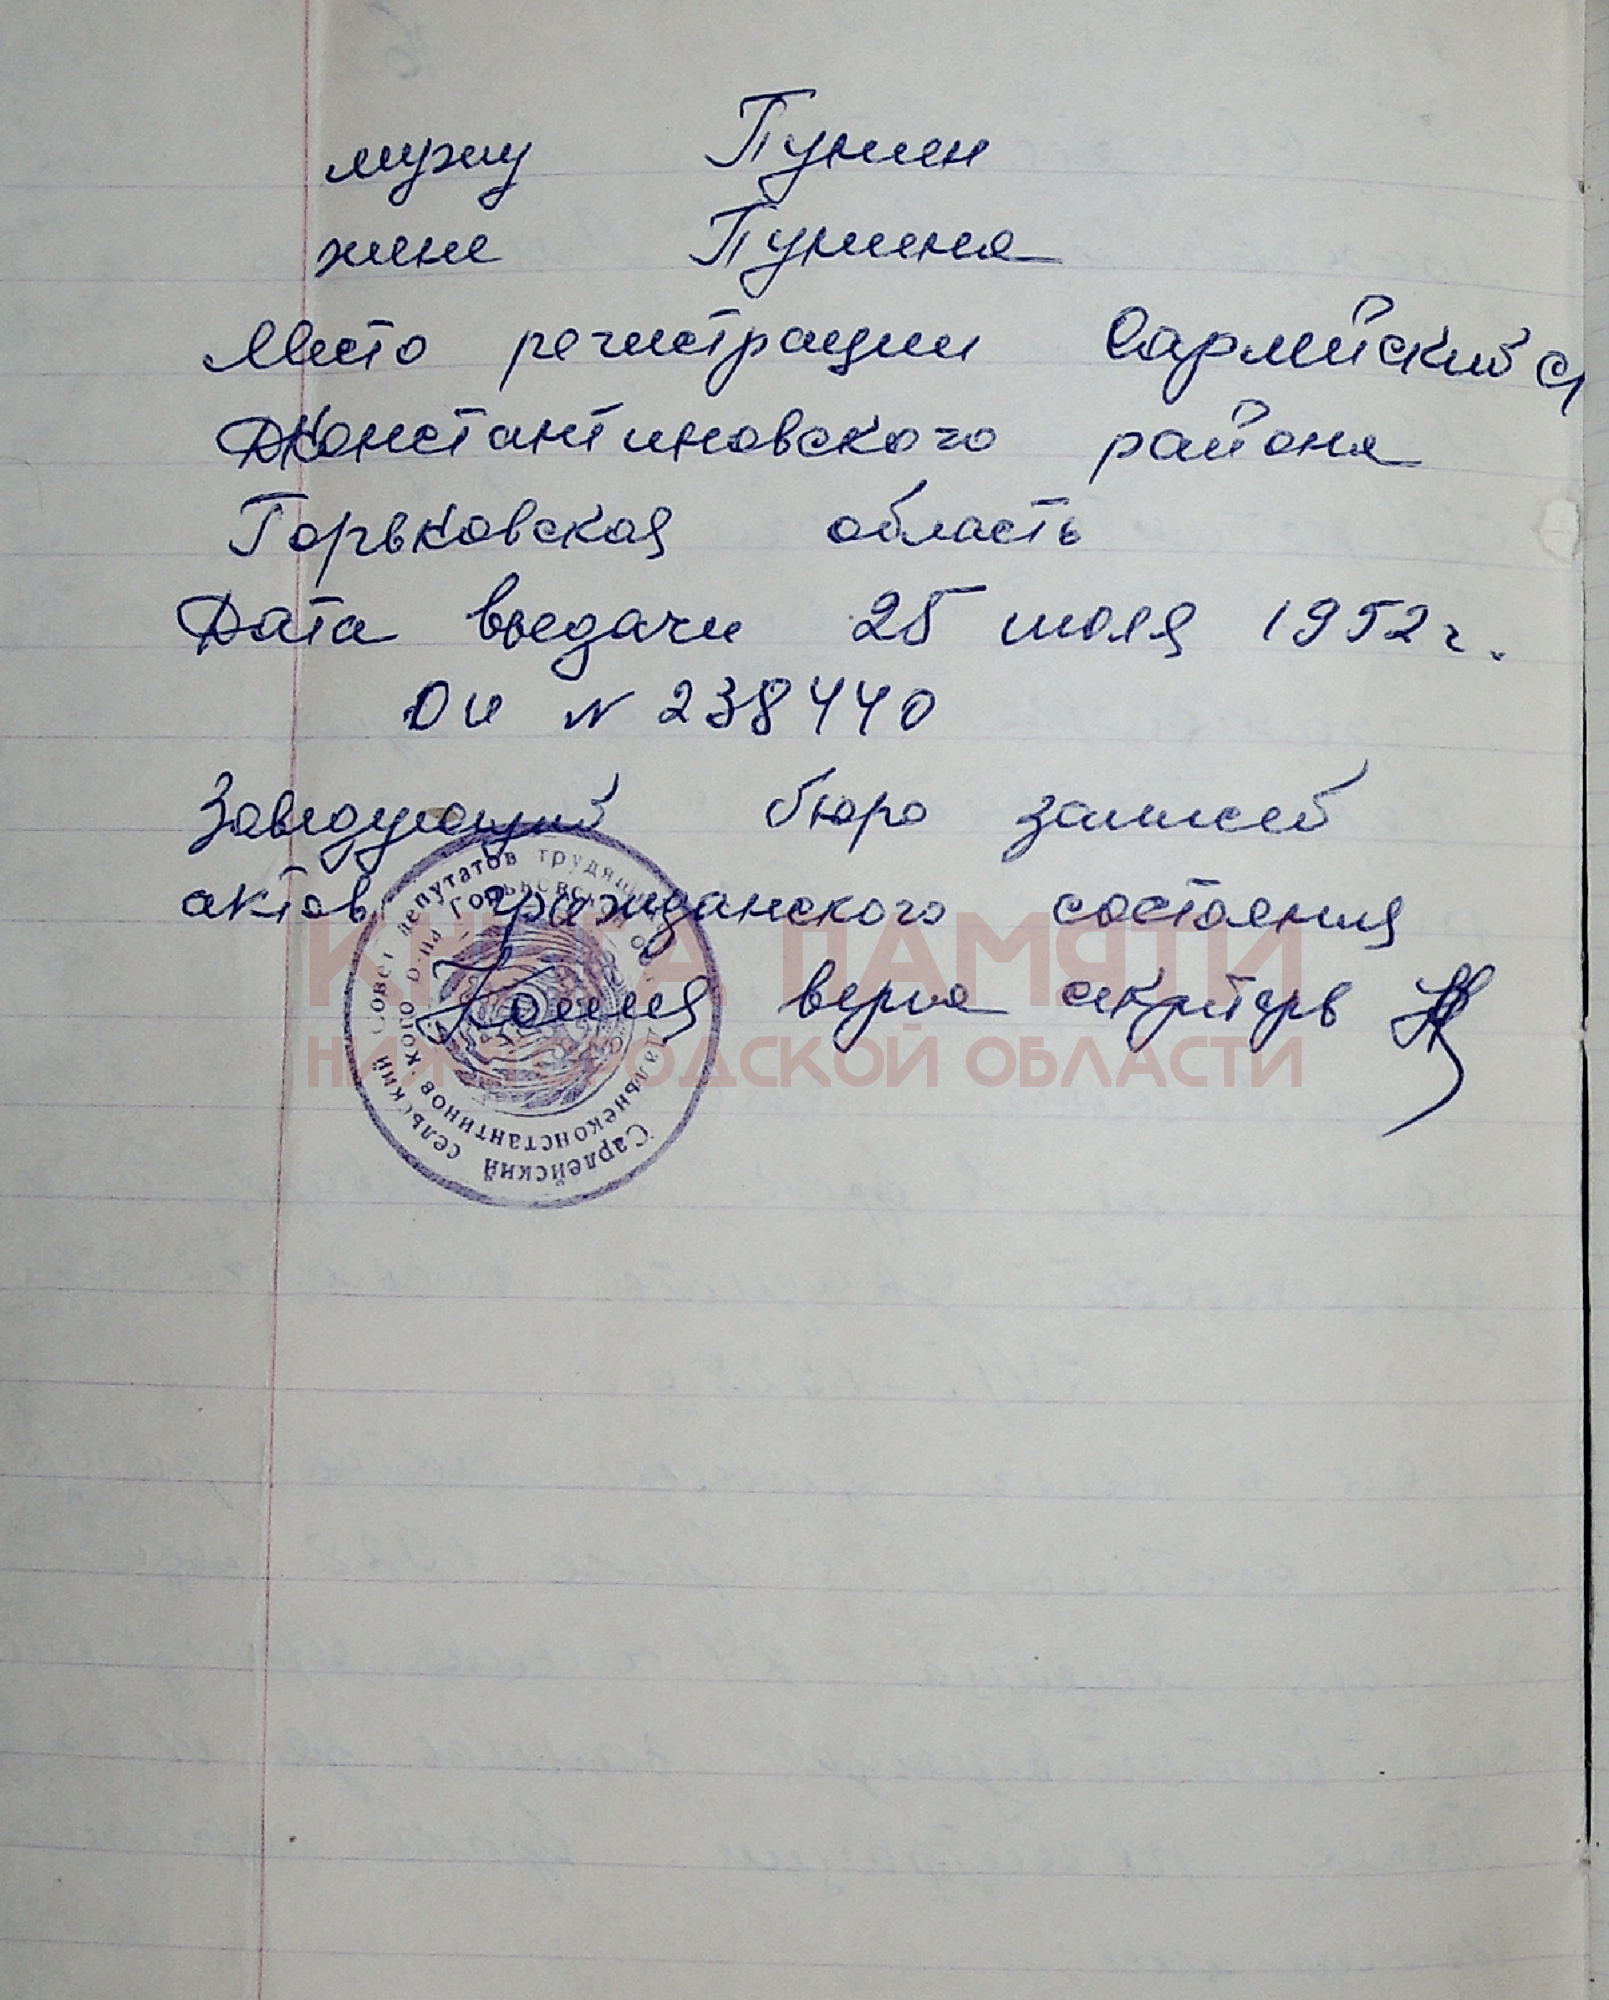 мужу Пунин
жене Пунина
Место регистрации Сарлейский с/
ДКонстантиновского района
Горьковская область
Дата выдачи 25 июля 1952 г.
ОИ № 238440
Заведующий бюро записей
актов гражданского состояния
Копия верна секретарь
Сарлейский сельский Совет депутатов трудящихся
Дальнеконстантиновского р-на Горьковской
КНИГА ПАМЯТИ
НИЖЕГОРОДСКОЙ ОБЛАСТИ